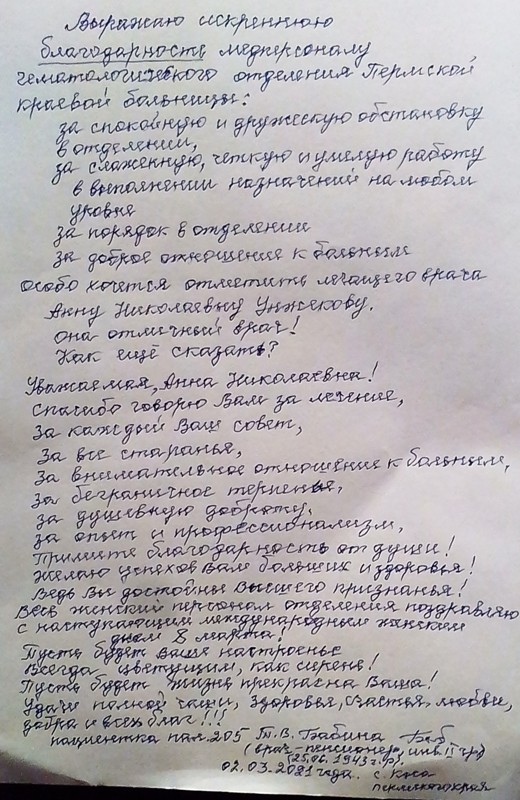 Выражаю искреннюю
благодарность медперсоналу
гематологического отделения Пермской
краевой больницы:
за спокойную и дружескую обстановку
в отделении,
за слаженную, четкую и умелую работу
в выполнении назначений на любом
уровне
за порядок в отделении
за доброе отношение к больным
особо хочется отметить лечащего врача
Анну Николаевну Унжекову.
она отличный врач!
Как ещё сказать?
Уважаемая, Анна Николаевна!
Спасибо говорю Вам за лечение,
За каждый Ваш совет,
За все старанья,
За внимательное отношение к больным,
За безграничное терпенье,
За душевную доброту,
За опыт и профессионализм,
Примите благодарность от души!
Желаю успехов Вам больших и здоровья!
Ведь Вы достойны Высшего признанья!
Весь женский персонал отделения поздравляю
с наступающим международным женским
днём 8 марта!
Пусть будет Ваше настроенье
Всегда цветущим, как сирень!
Пусть будет жизнь прекрасна Ваша!
Удачи полной чаши, Здоровья, Счастья, любви,
добра и всех благ!!!
пациентка пал. 205 Т.В. Бабина
(врач-пенсионер, инв. II гр.)
(25.06.1943 г.р.)
02.03.2021 года. с. Коса
пермского края